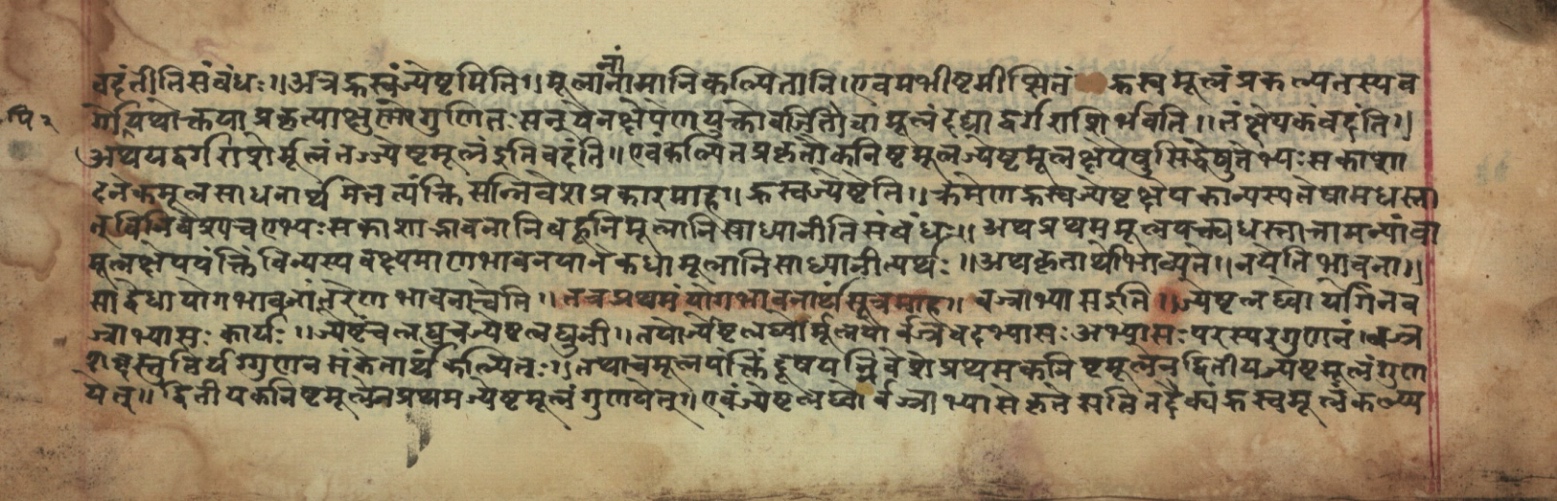 वदंतीतिसंबंधः॥अत्रह्रस्वंज्येष्टमिति॥मूलानांनामानिकल्पितानि।एवमभीष्टमीप्सितं ह्रस्वमूलंप्रकल्प्यतस्यव
र्गोयथोक्तयाप्रकृत्याक्षुण्णोगुणितःसन्येनक्षेपेणयुक्तोवर्जितोवामूलंदद्याद्वर्गराशिर्भवति॥तंक्षेपकंवदंति॥
अथयद्वर्गराशेर्मूलंतज्ज्येष्टमूलंइतिवदंति॥एवंकल्पितप्रकृतौकनिष्टमूलज्येष्टमूलक्षेपेषुसिद्धेषुतेभ्यःसकाशा
दनेकमूलसाधनार्थमितत्पंक्तिसन्निवेशप्रकारमाह॥ह्रस्वज्येष्टेति॥क्रमेणह्रस्वज्येष्टक्षेपकान्यस्यतेषामधस्ता
नुविनिवेश्यच एभ्यःसकाशाद्भावनानिबहूनिमूलानिसाध्यानीतिसंबंधः॥अथप्रथममूलपंक्त्यधस्तात्तामन्यांवा
मूलक्षेपपंक्तिंविन्यस्यवक्ष्यमाणभावनयानेकधामूलानिसाध्यानीत्यर्थः॥अथकृतार्थोभाव्यते॥नयेतिभावना॥
साद्वेधायोगभावनांतरेणभावनाचेति॥तत्रप्रथमंयोगभावनार्थसूत्रमाह॥वज्राभ्यासइति॥ज्येष्टलघ्वोर्योगेनव
ज्राभ्यासःकार्यः॥ज्येष्टंचलघुचज्येष्टलघुनी॥तयोर्ज्येष्टलघ्वोर्मूलयोर्वज्रवदभ्यासःअभ्यासःपरस्परगुणनं।वज्र
शब्दस्तुतिर्यग्गुणनसंकेतार्थंकल्पितः॥तथाचमूलपंक्तिद्वयसन्निवेशेप्रथमकनिष्टमूलेनद्वितीयज्येष्टमूलंगुण
येत्॥द्वितीयकनिष्टमूलेनप्रथमज्येष्टमूलंगुणयेत्।एवंज्येष्टलघ्वोर्वज्राभ्यासेकृतेसतितदैक्यंह्रस्वमूलंकल्प्य